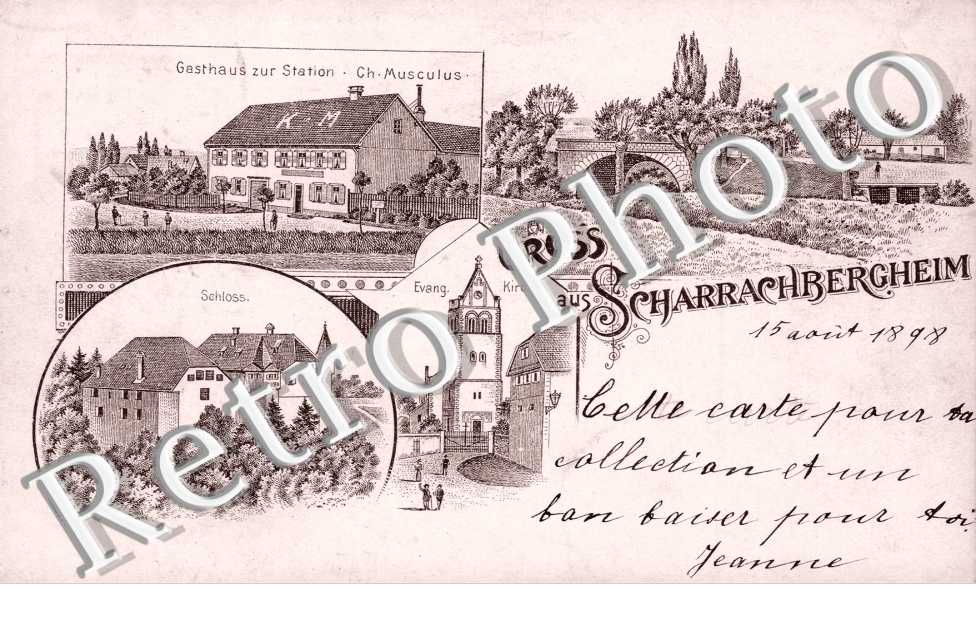 Gasthaus zur Station · Ch. Musculus ·
K · M
Schloss.
Evang. Kirche
GRUSS
aus SCHARRACHBERGHEIM
15 août 1898
Cette carte pour ta
collection et un
bon baiser pour toi.
Jeanne
Retro Photo